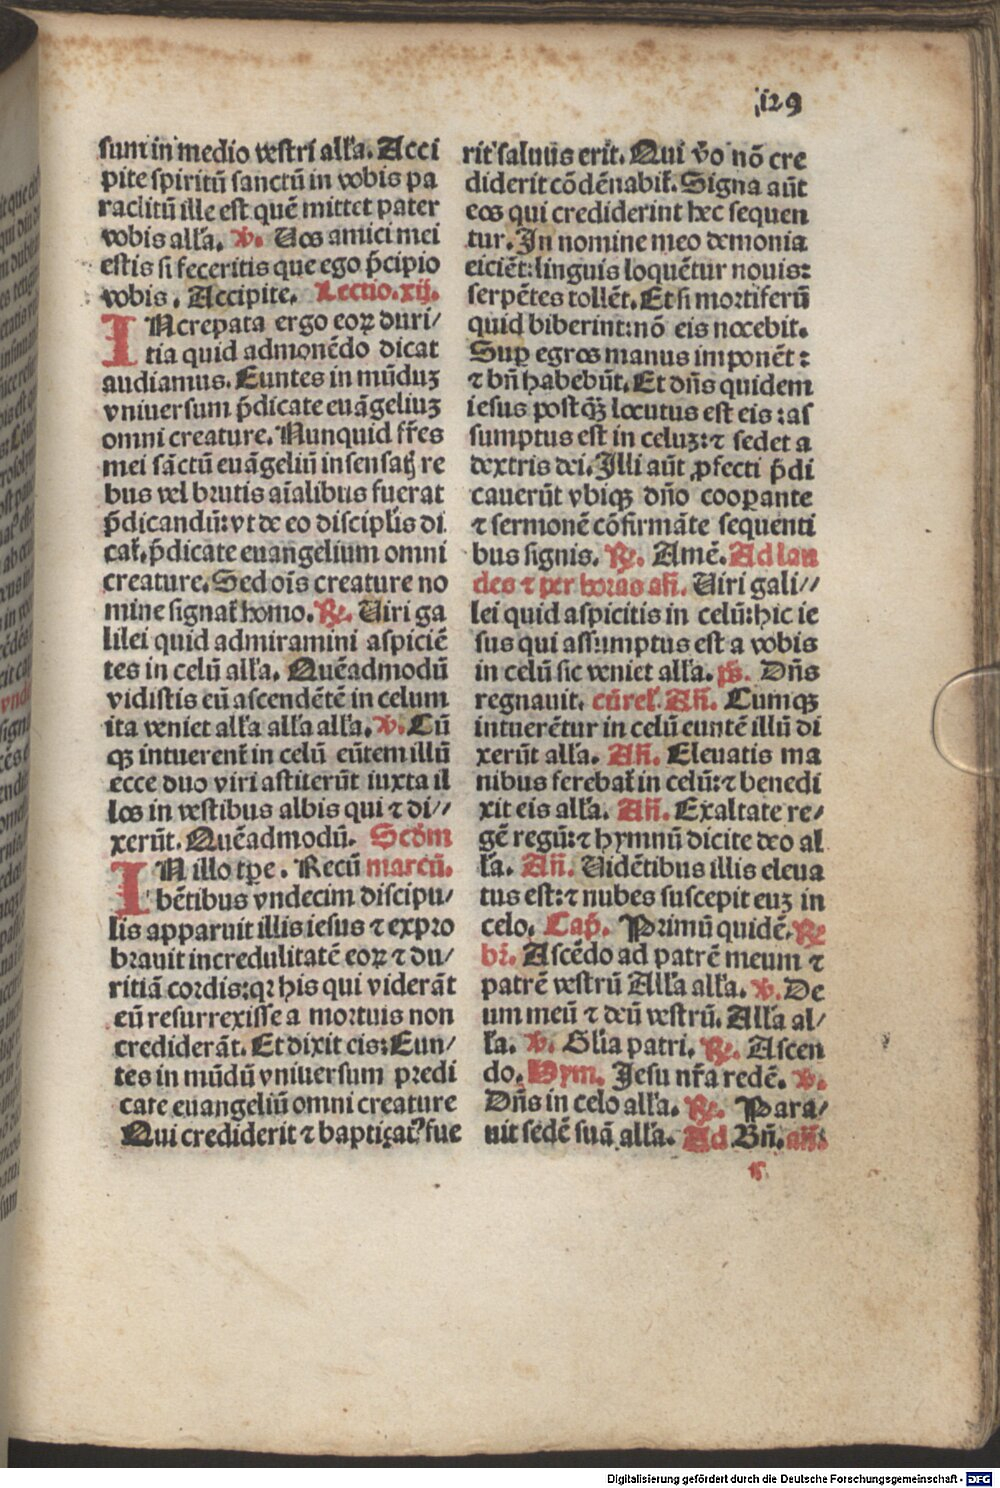 129
sum in medio vestri alľa. Acci
pite spiritū sanctū in vobis pa
raclitū ille est quē mittet pater
vobis alľa. ꝟ. Uos amici mei
estis si feceritis que ego p̄cipio
vobis. Accipite. Lectio.xij.
INcrepata ergo eoꝝ duri/
tia quid admonēdo dicat
audiamus. Euntes in mūduꝫ
vniuersum p̄dicate euāgeliuꝫ
omni creature. Nunquid fr̄es
mei sāctū euāgeliū insensatꝭ re
bus vel brutis aīalibus fuerat
p̄dicandū: vt de eo discipľis di
cať. p̄dicate euangelium omni
creature. Sed oīs creature no
mine signať homo. ℞. Uiri ga
lilei quid admiramini aspiciē
tes in celū alľa. Quēadmodū
vidistis eū ascendētē in celum
ita veniet alľa alľa alľa. ꝟ. Cū
qꝫ intuerenť in celū eūtem illū
ecce duo viri astiterūt iuxta il
los in vestibus albis qui ⁊ di//
xerūt. Quēadmodū. Scḋm
IN illo tꝑe. Recū marcū.
bētibus vndecim discipu/
lis apparuit illis iesus ⁊ expro
brauit incredulitatē eoꝝ ⁊ du/
ritiā cordis: qꝛ his qui viderāt
eū resurrexisse a mortuis non
crediderāt. Et dixit eis: Eun/
tes in mūdū vniuersum predi
cate euangeliū omni creature
Qui crediderit ⁊ baptiȥat⁹ fue
rit saluus erit. Qui v̊o nō cre
diderit cōdēnabiť. Signa aūt
eos qui crediderint hec sequen
tur. In nomine meo demonia
eiciēt: linguis loquētur nouis:
serpētes tollēt. Et si mortiferū
quid biberint: nō eis nocebit.
Suꝑ egros manus imponēt:
⁊ bn̄ habebūt. Et dn̄s quidem
iesus postqꝫ̄ locutus est eis: as
sumptus est in celuꝫ: ⁊ sedet a
dextris dei. Illi aūt ꝓfecti p̄di
cauerūt vbiqꝫ dn̄o cooꝑante
⁊ sermonē cōfirmāte sequenti
bus signis. ℞. Amē. Ad lau
des ⁊ per horas an̄. Uiri gali//
lei quid aspicitis in celū: hic ie
sus qui assumptus est a vobis
in celū sic veniet alľa. ps̄. Dn̄s
regnauit. cū reľ. An̄. Cumqꝫ
intuerētur in celū euntē illū di
xerūt alľa. An̄. Eleuatis ma
nibus ferebať in celū: ⁊ benedi
xit eis alľa. An̄. Exaltate re/
gē regū: ⁊ hymnū dicite deo al
ľa. An̄. Uidētibus illis eleua
tus est: ⁊ nubes suscepit euꝫ in
celo. Cap̄. Primū quidē. ℞
br̄. Ascēdo ad patrē meum ⁊
patrē vestrū Alľa alľa. ꝟ. De
um meū ⁊ deū vestrū. Alľa al/
ľa. ꝟ. Glīa patri. ℞. Ascen
do. Hym. Jesu nr̄a redē. ꝟ.
Dn̄s in celo alľa. ℞. Para/
uit sedē suā alľa. Ad Bn̄. an̄: